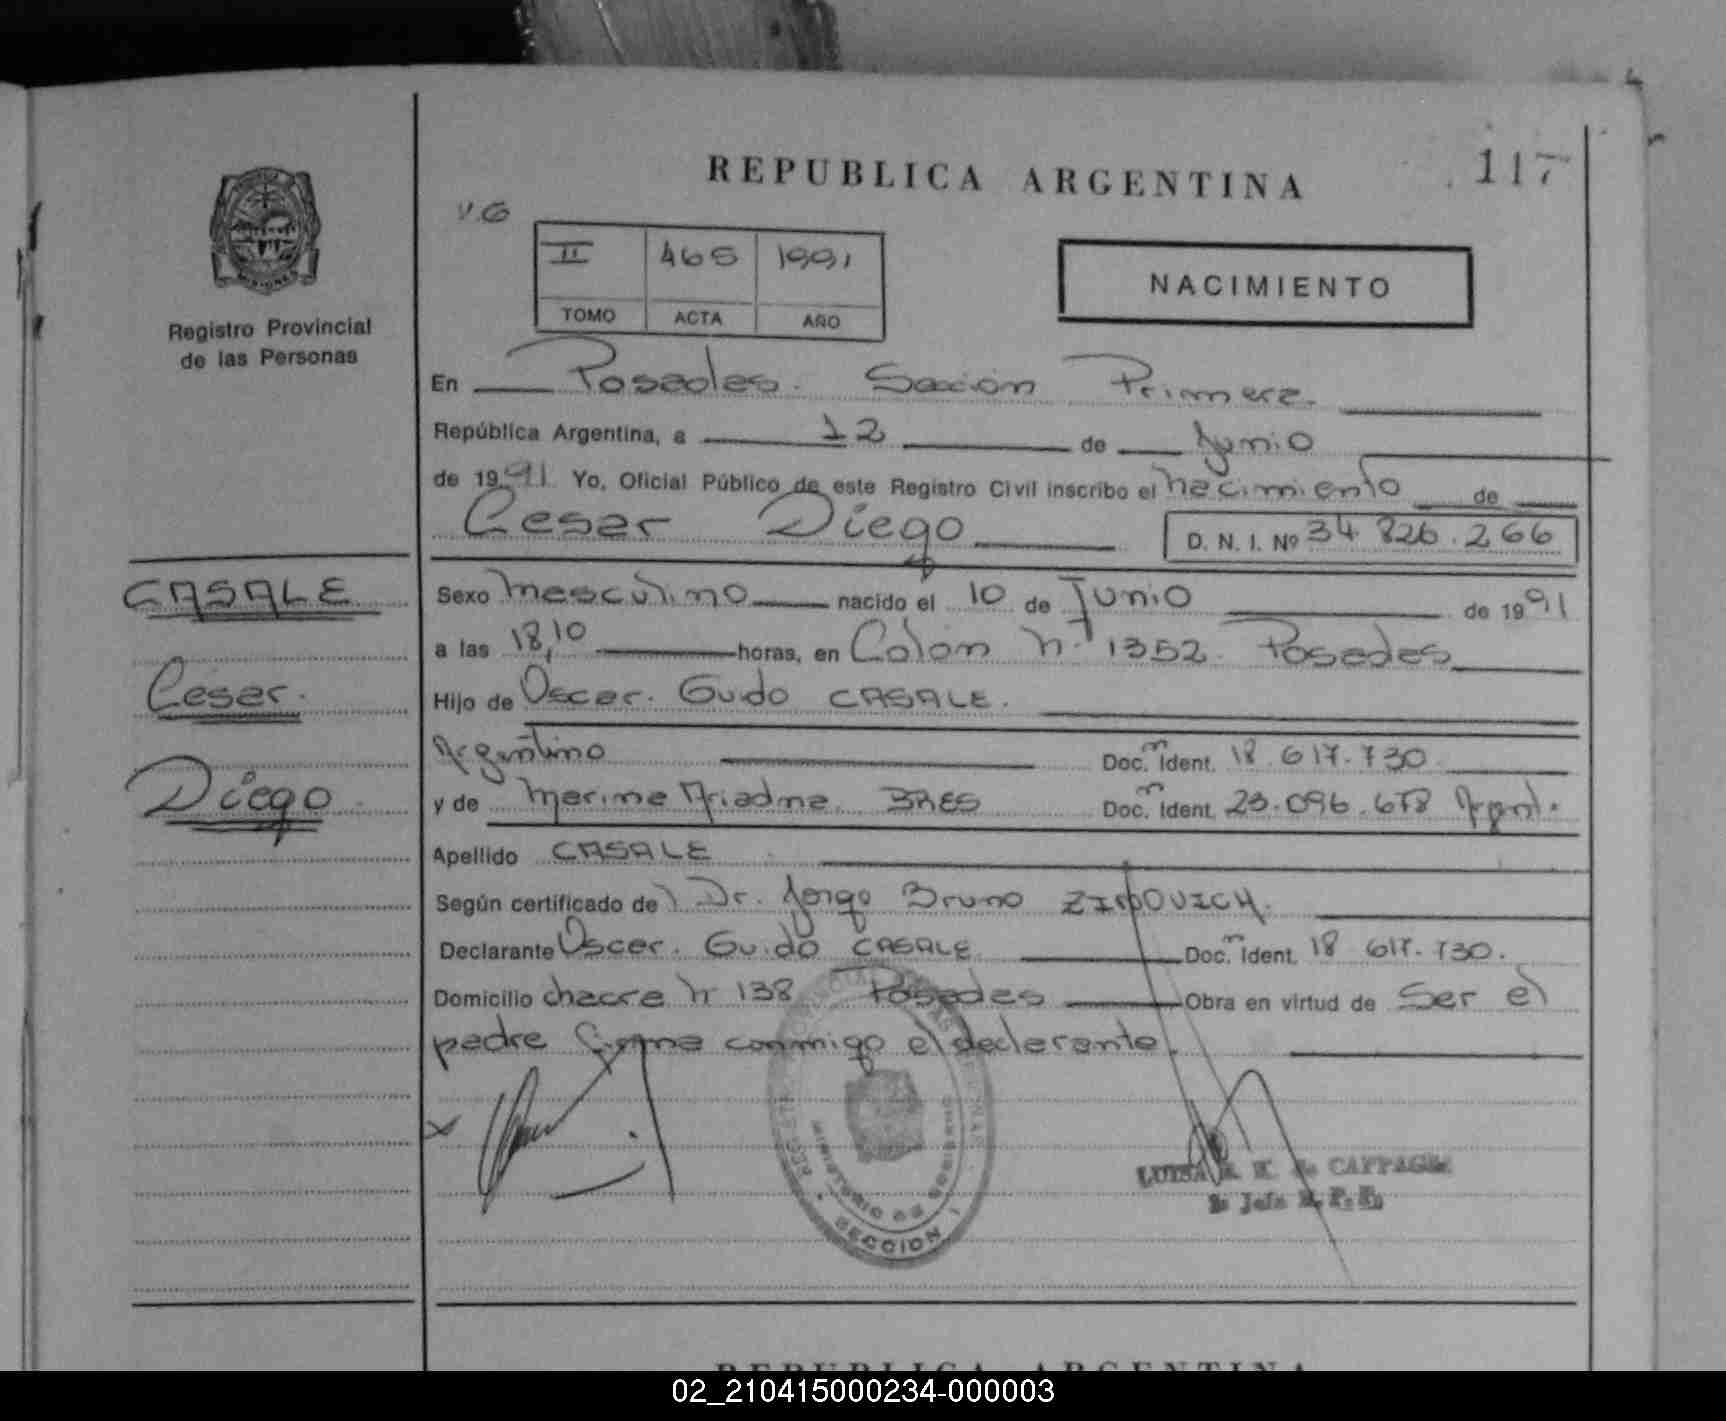 REPUBLICA ARGENTINA
117
V.G
II 465 1991
TOMO ACTA AÑO
NACIMIENTO
Registro Provincial
de las Personas
En Posadas. Sección Primera.
República Argentina, a 12 de Junio
de 1991 Yo, Oficial Público de este Registro Civil inscribo el nacimiento de
Cesar Diego D. N. I. Nº 34.826.266
CASALE
Cesar.
Diego
Sexo masculino nacido el 10 de Junio de 1991
a las 18,10 horas, en Colón nº 1352. Posadas
Hijo de Oscar. Guido CASALE.
Argentino Doc. Ident. 18.617.730
y de Marina Ariadna BRES Doc. Ident. 23.096.678 Argent.
Apellido CASALE
Según certificado del Dr. Jorge Bruno
Declarante Oscar. Guido CASALE Doc. Ident. 18 617.730.
Domicilio chacra nº 138 Posadas Obra en virtud de Ser el
padre firma conmigo el declarante.
REGISTRO PROVINCIAL DE LAS PERSONAS
MINISTERIO DE GOBIERNO
SECCION 1
LUISA
Jefe R. P. P.
REPUBLICA ARGENTINA
02_210415000234-000003